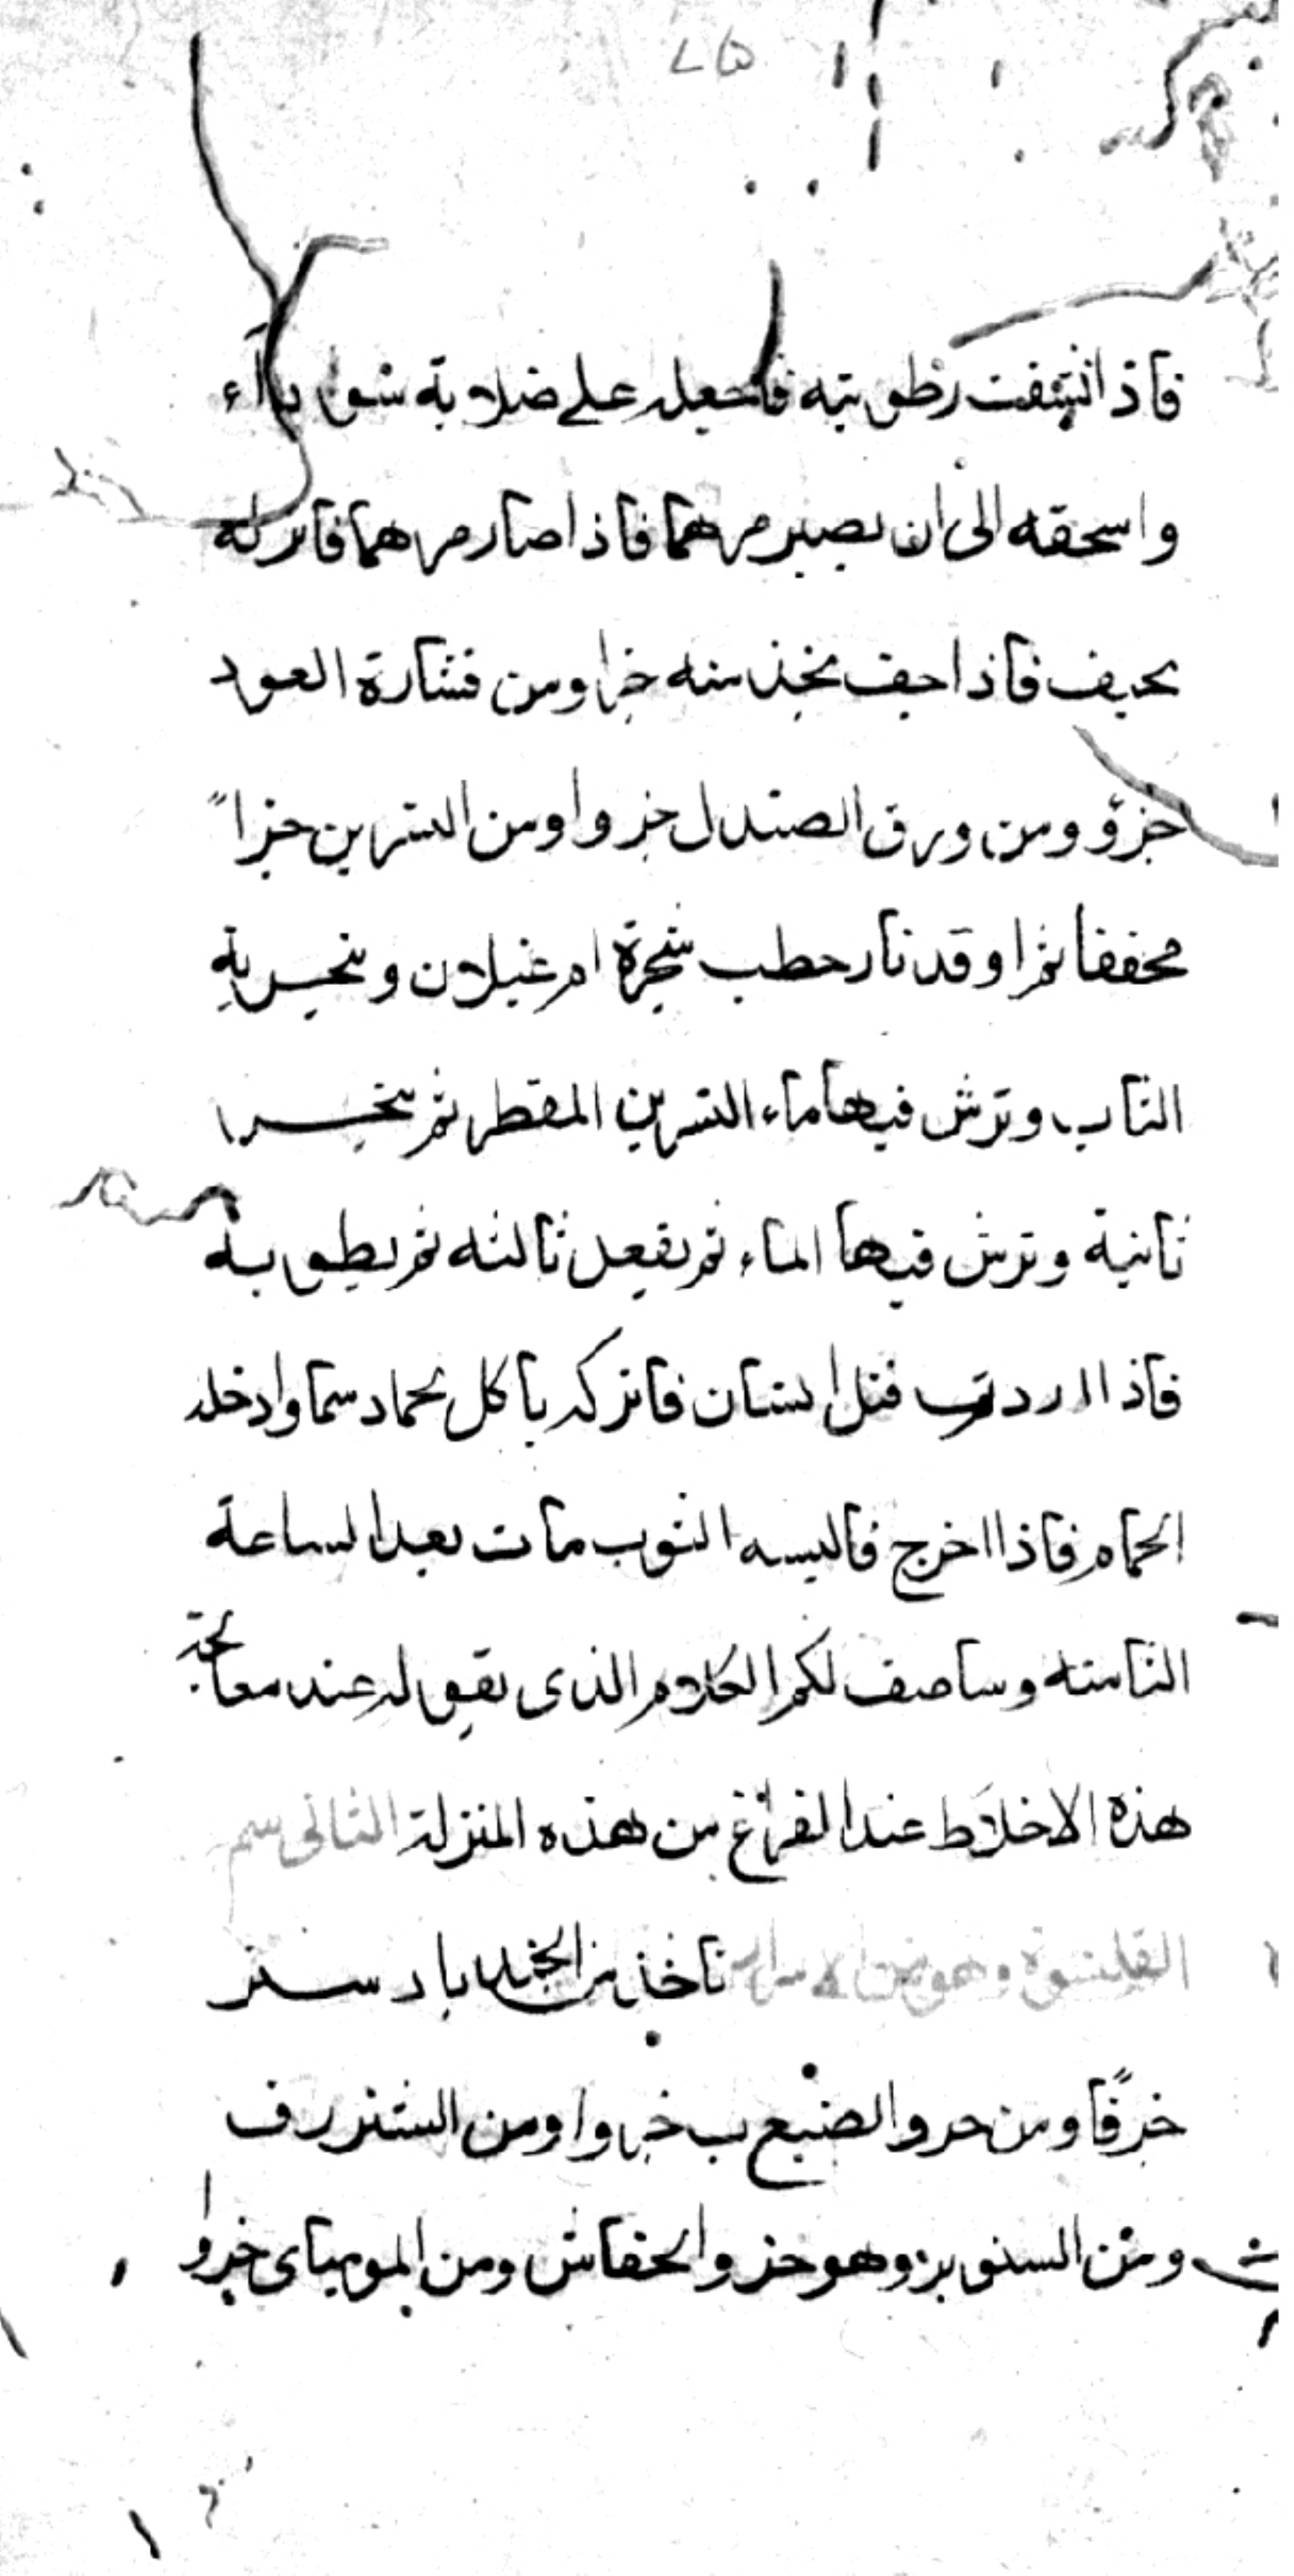 فاذ انشفت رطوبته فاجعله على صلابة سودآء
واسحقه الى ان يصير مرهما فاذا صار مرهما فاتركه
يجف فاذا جف تخذ منه جزا ومن قشارة العود
جزؤ ومن ورق الصندل جزوا ومن النسرين جزا
مجففا ثم اوقد نار حطب شجرة ام غيلان وتبخر به
الثياب وترش فيها ماء النسرين المقطر ثم تبخر
ثانية وترش فيها الماء ثم تفعل ثالثه ثم يطوى
فاذا اردت قتل انسان فاتركه ياكل دسما وادخله
الحمام فاذا اخرج فالبسه الثوب مات بعد الساعة
الثامنه وساصف لكم الكلام الذى تقوله عند معالجة
هذه الاخلاط عند الفراغ من هذه المنزلة الثانى سم
القلنسوة وهو من الاسرار تاخذ من الجندبادستر
جزءا ومن خرو الضبع جزوا ومن الشنزرف
ومن السنو يز وهو خرو الخفاش ومن الموميائى جزوا